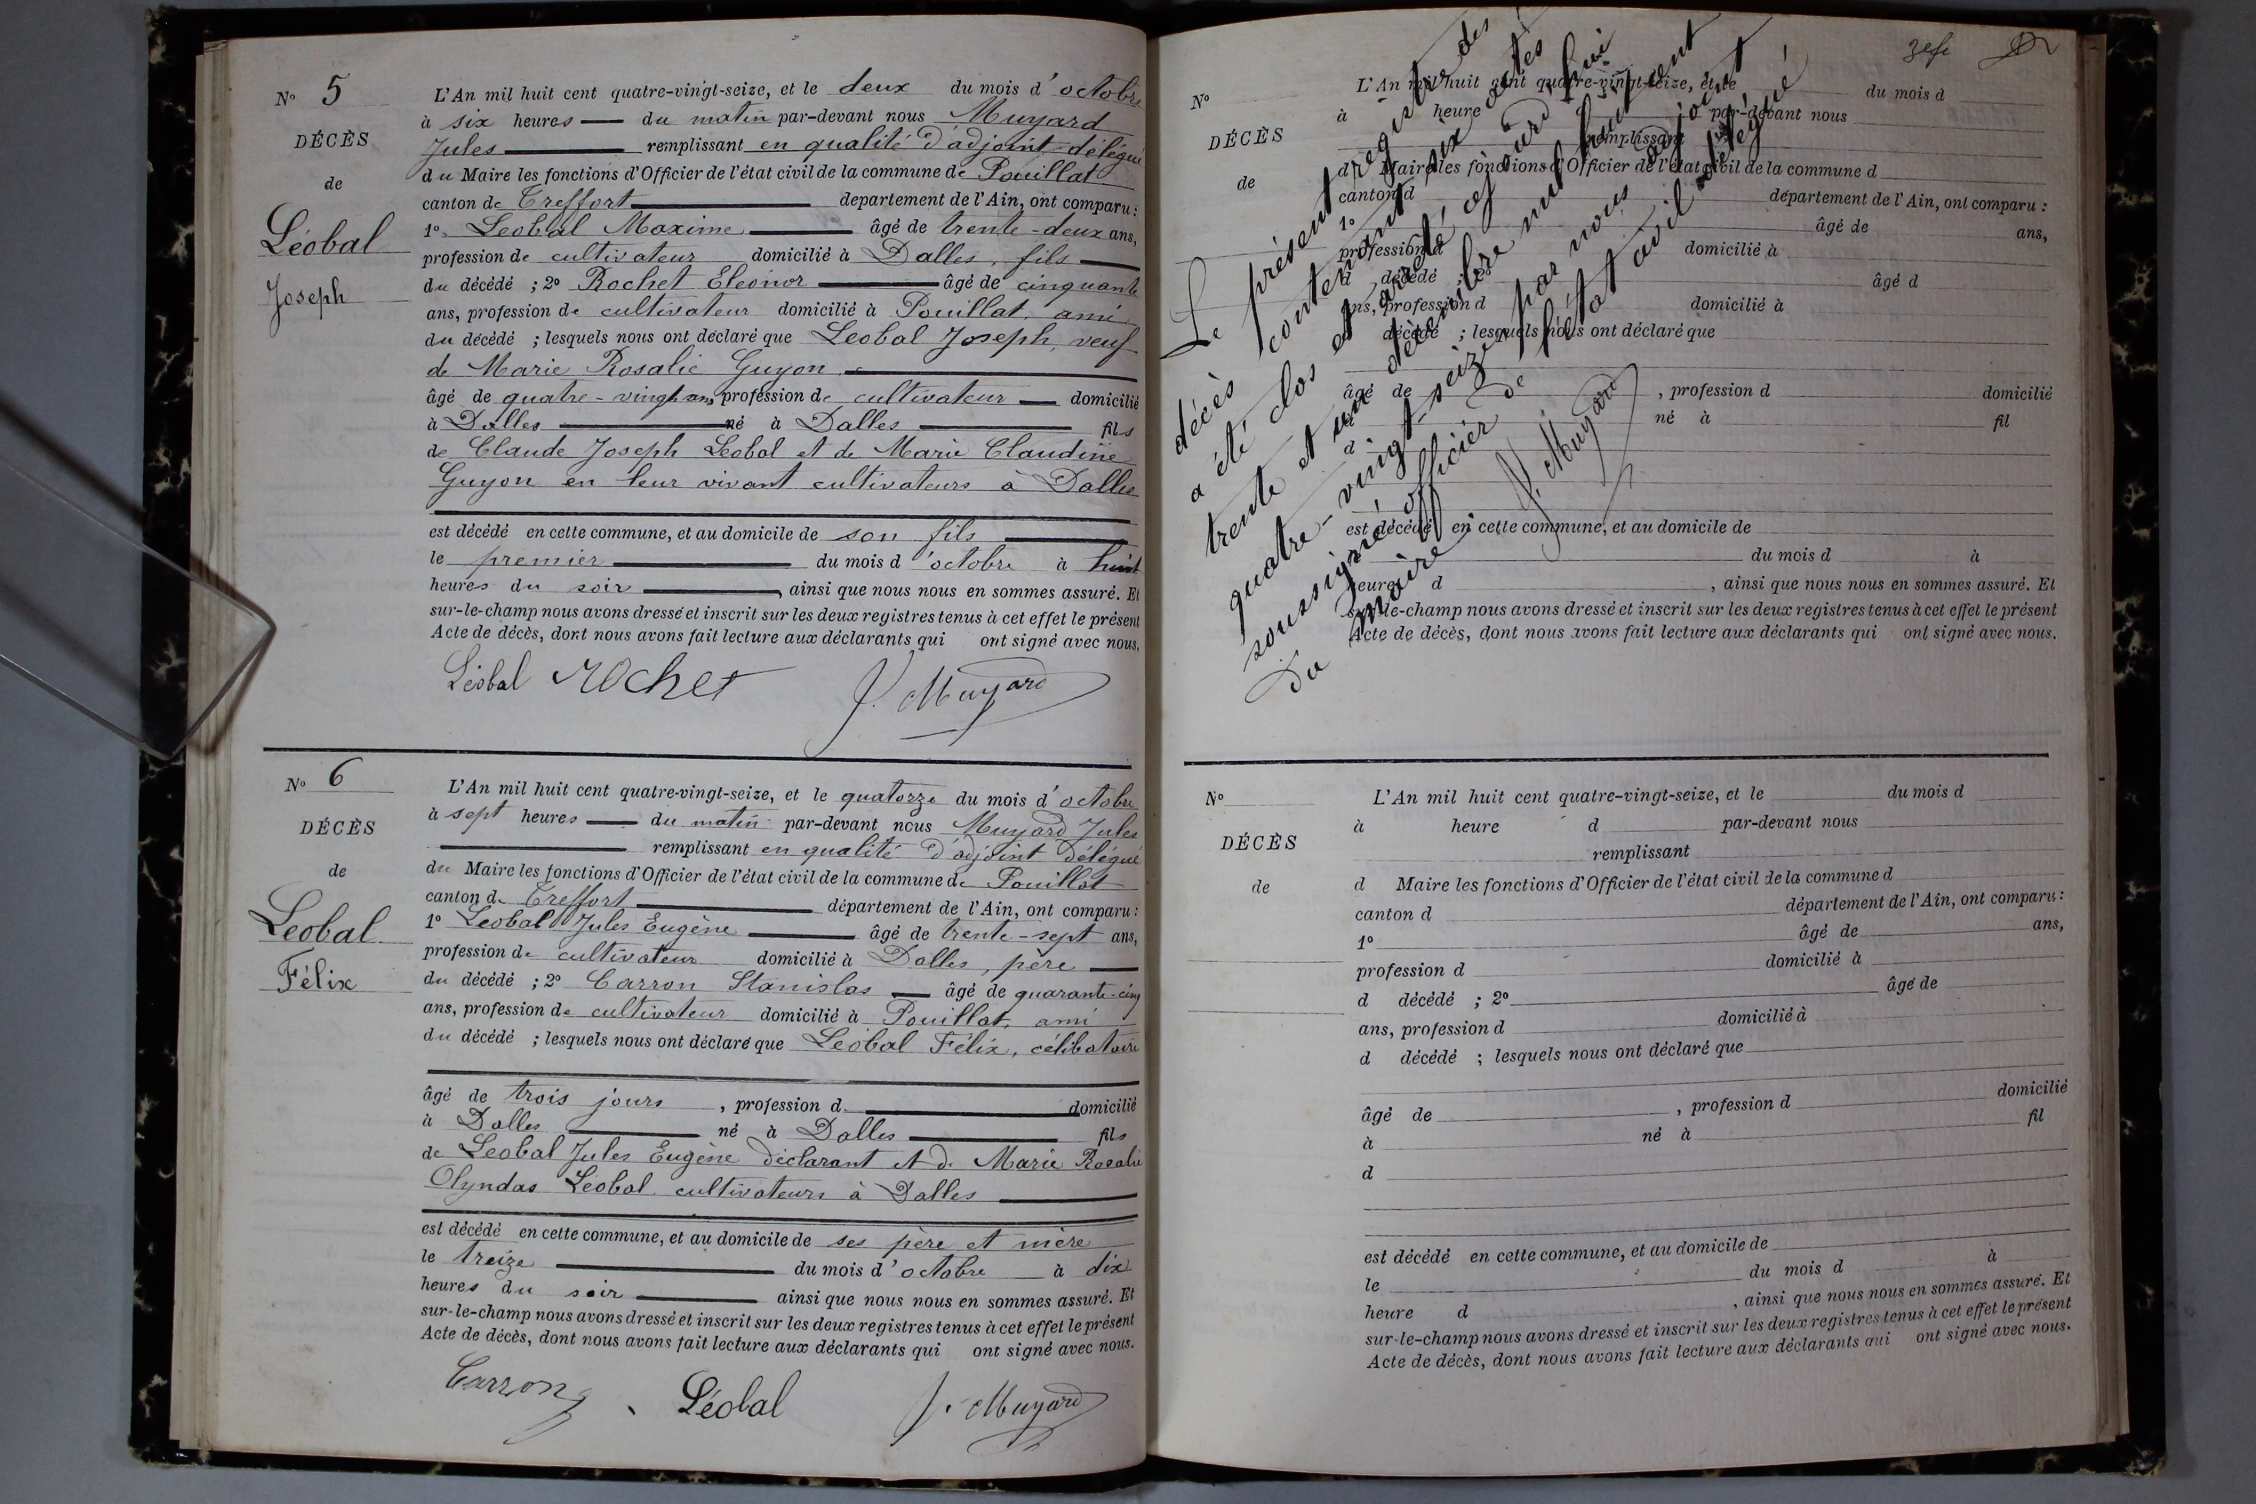 N° 5
DÉCÈS
de
Léobal
Joseph
L'An mil huit cent quatre-vingt-seize, et le deux du mois d'octobre
à six heures du matin par-devant nous Muyard
Jules remplissant en qualité d'adjoint-délégué
du Maire les fonctions d'Officier de l'état civil de la commune de Pouillat
canton de Treffort département de l'Ain, ont comparu :
1° Leobal Maxime âgé de trente-deux ans,
profession de cultivateur domicilié à Dalles, fils
du décédé ; 2° Rochet Eléonor âgé de cinquante
ans, profession de cultivateur domicilié à Pouillat, ami
du décédé ; lesquels nous ont déclaré que Leobal Joseph, veuf
de Marie Rosalie Guyon
âgé de quatre-vingt ans, profession de cultivateur domicilié
à Dalles né à Dalles fils
de Claude Joseph Leobal et de Marie Claudine
Guyon en leur vivant cultivateurs à Dalles
est décédé en cette commune, et au domicile de son fils
le premier du mois d'octobre à huit
heures du soir, ainsi que nous nous en sommes assuré. Et
sur-le-champ nous avons dressé et inscrit sur les deux registres tenus à cet effet le présent
Acte de décès, dont nous avons fait lecture aux déclarants qui ont signé avec nous.
Léobal Rochet J. Muyard
N° 6
DÉCÈS
de
Leobal
Félix
L'An mil huit cent quatre-vingt-seize, et le quatorze du mois d'octobre
à sept heures du matin par-devant nous Muyard Jules
remplissant en qualité d'adjoint délégué
du Maire les fonctions d'Officier de l'état civil de la commune de Pouillat
canton de Treffort département de l'Ain, ont comparu :
1° Leobal Jules Eugène âgé de trente-sept ans,
profession de cultivateur domicilié à Dalles, père
du décédé ; 2° Carron Stanislas âgé de quarante-cinq
ans, profession de cultivateur domicilié à Pouillat, ami
du décédé ; lesquels nous ont déclaré que Léobal Félix, célibataire
âgé de trois jours, profession d domicilié
à Dalles né à Dalles fils
de Leobal Jules Eugène déclarant et de Marie Rosalie
Olyndas Leobal cultivateurs à Dalles
est décédé en cette commune, et au domicile de ses père et mère
le treize du mois d'octobre à dix
heures du soir ainsi que nous nous en sommes assuré. Et
sur-le-champ nous avons dressé et inscrit sur les deux registres tenus à cet effet le présent
Acte de décès, dont nous avons fait lecture aux déclarants qui ont signé avec nous.
Carron Léobal J. Muyard
N°
DÉCÈS
de
L'An mil huit cent quatre-vingt-seize, et le du mois d
à heure d par-devant nous
remplissant
d Maire les fonctions d'Officier de l'état civil de la commune d
canton d département de l'Ain, ont comparu :
1° âgé de ans,
profession d domicilié à
d décédé ; 2° âgé d
ans, profession d domicilié à
d décédé ; lesquels nous ont déclaré que
âgé de , profession d domicilié
à né à fil
d
est décédé en cette commune, et au domicile de
le du mois d à
heure d , ainsi que nous nous en sommes assuré. Et
sur-le-champ nous avons dressé et inscrit sur les deux registres tenus à cet effet le présent
Acte de décès, dont nous avons fait lecture aux déclarants qui ont signé avec nous.
Le présent registre des
décès contenant six actes
a été clos et arrêté cejourd'hui
trente et un décembre mil huit cent
quatre-vingt-seize par nous adjoint
soussigné officier de l'état civil délégué
du maire.
J. Muyard
N°
DÉCÈS
de
L'An mil huit cent quatre-vingt-seize, et le du mois d
à heure d par-devant nous
remplissant
d Maire les fonctions d'Officier de l'état civil de la commune d
canton d département de l'Ain, ont comparu :
1° âgé de ans,
profession d domicilié à
d décédé ; 2° âgé de
ans, profession d domicilié à
d décédé ; lesquels nous ont déclaré que
âgé de , profession d domicilié
à né à fil
d
est décédé en cette commune, et au domicile de
le du mois d à
heure d , ainsi que nous nous en sommes assuré. Et
sur-le-champ nous avons dressé et inscrit sur les deux registres tenus à cet effet le présent
Acte de décès, dont nous avons fait lecture aux déclarants qui ont signé avec nous.